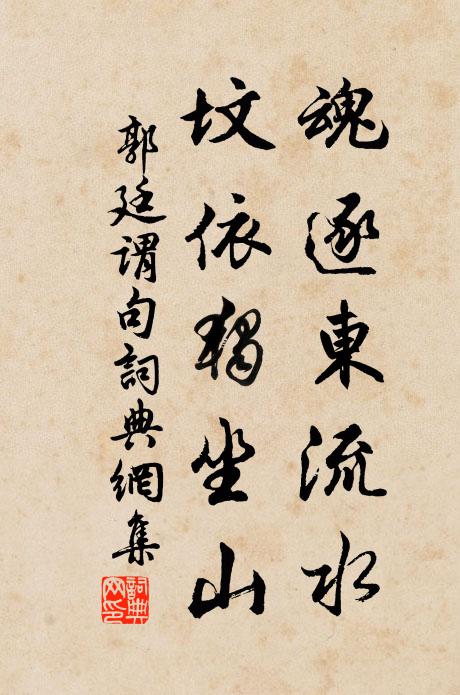 魂逐東流水
墳依獨坐山
郭廷謂句詞典網集
詞典網印